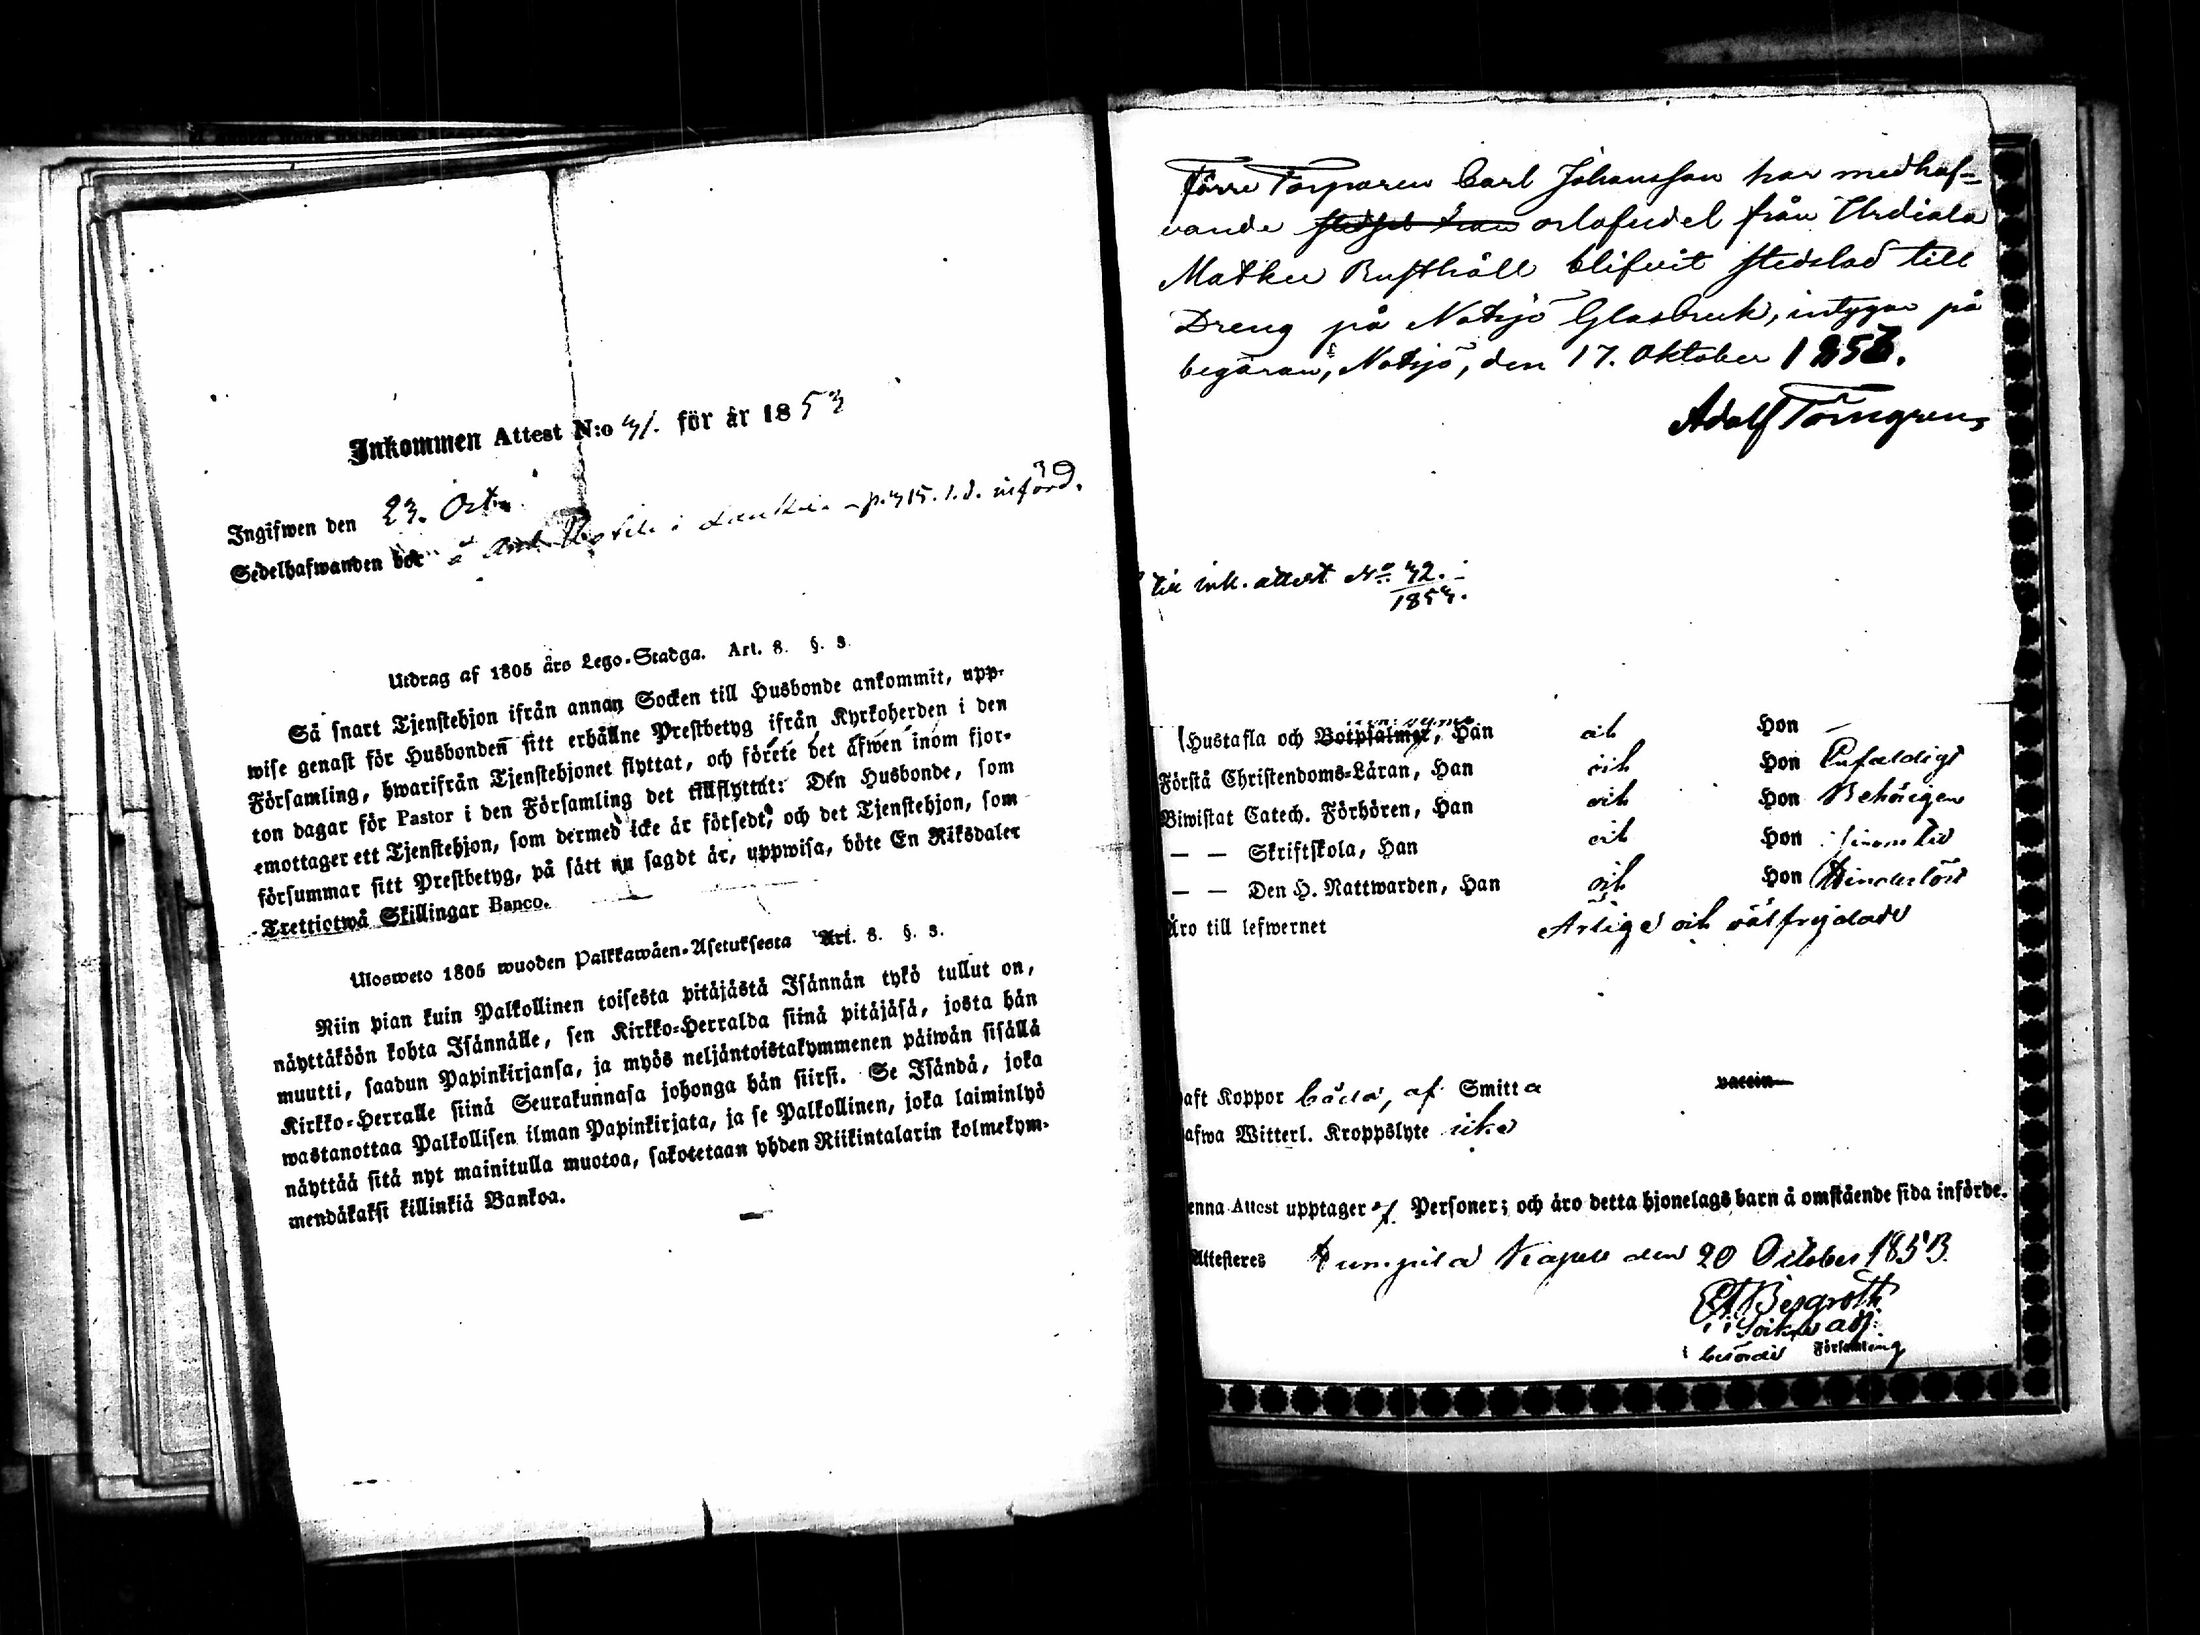 Inkommen Attest N:o 41. för år 1853
Ingifwen den 23. Oct.
Sedelhafwanden bor å i p. 415. 1. d. införd.
Utdrag af 1805 års Lego-Stadga. Art. 8. §. 3.
Så snart Tjenstehjon ifrån annan Socken till Husbonde ankommit, upp-
wise genast för Husbonden sitt erhållne Prestbetyg ifrån Kyrkoherden i den
Församling, hwarifrån Tjenstehjonet flyttat, och förete det äfwen inom fjor-
ton dagar för Pastor i den Församling det tillflyttat: Den Husbonde, som
emottager ett Tjenstehjon, som dermed icke är försedt, och det Tjenstehjon, som
försummar sitt Prestbetyg, på sätt nu sagdt är, uppwisa, böte En Riksdaler
Trettiotwå Skillingar Banco.
Ulosweto 1805 wuoden Palkkawäen-Asetuksesta Art. 8. §. 3.
Niin pian kuin Palkollinen toisesta pitäjästä Isännän tykö tullut on,
näyttäköön kohta Isännälle, sen Kirkko-Herralda siinä pitäjäsä, josta hän
muutti, saadun Papinkirjansa, ja myös neljäntoistakymmenen päiwän sisällä
Kirkko-Herralle siinä Seurakunnasa johonga hän siirsi. Se Isändä, joka
wastanottaa Palkollisen ilman Papinkirjata, ja se Palkollinen, joka laiminlyö
näyttää sitä nyt mainitulla muotoa, sakotetaan yhden Riikintalarin kolmekym-
mendäkaksi killinkiä Bankoa.
Förre Torparen Carl Johansson har medhaf-
vande orlofssedel från Urdiala
Matku Rusthåll blifvit stedslad till
Dreng på Notsjö Glasbruk, intygar på
begäran, Notsjö, den 17. Oktober 1853.
Adolf Törngren
till ink. attest No 42.
1853.
Hustafla och Botpsalmer, Han och Hon –
Förstå Christendoms-Läran, Han och Hon Enfaldigt
Biwistat Catech. Förhören, Han och Hon Behörigen
— — Skriftskola, Han och Hon sin tid
— — Den H. Nattwarden, Han och Hon Hinderlöst
Äro till lefwernet Ärlige och välfrejdade
haft Koppor båda, af Smitta vaccin
hafwa Witterl. Kroppslyte icke
enna Attest upptager 7. Personer; och äro detta hjonelags barn å omstående sida införde.
Attesteres Humpila Kapell den 20 October 1853.
Bergroth
Sockne adj.
i berörde Församling